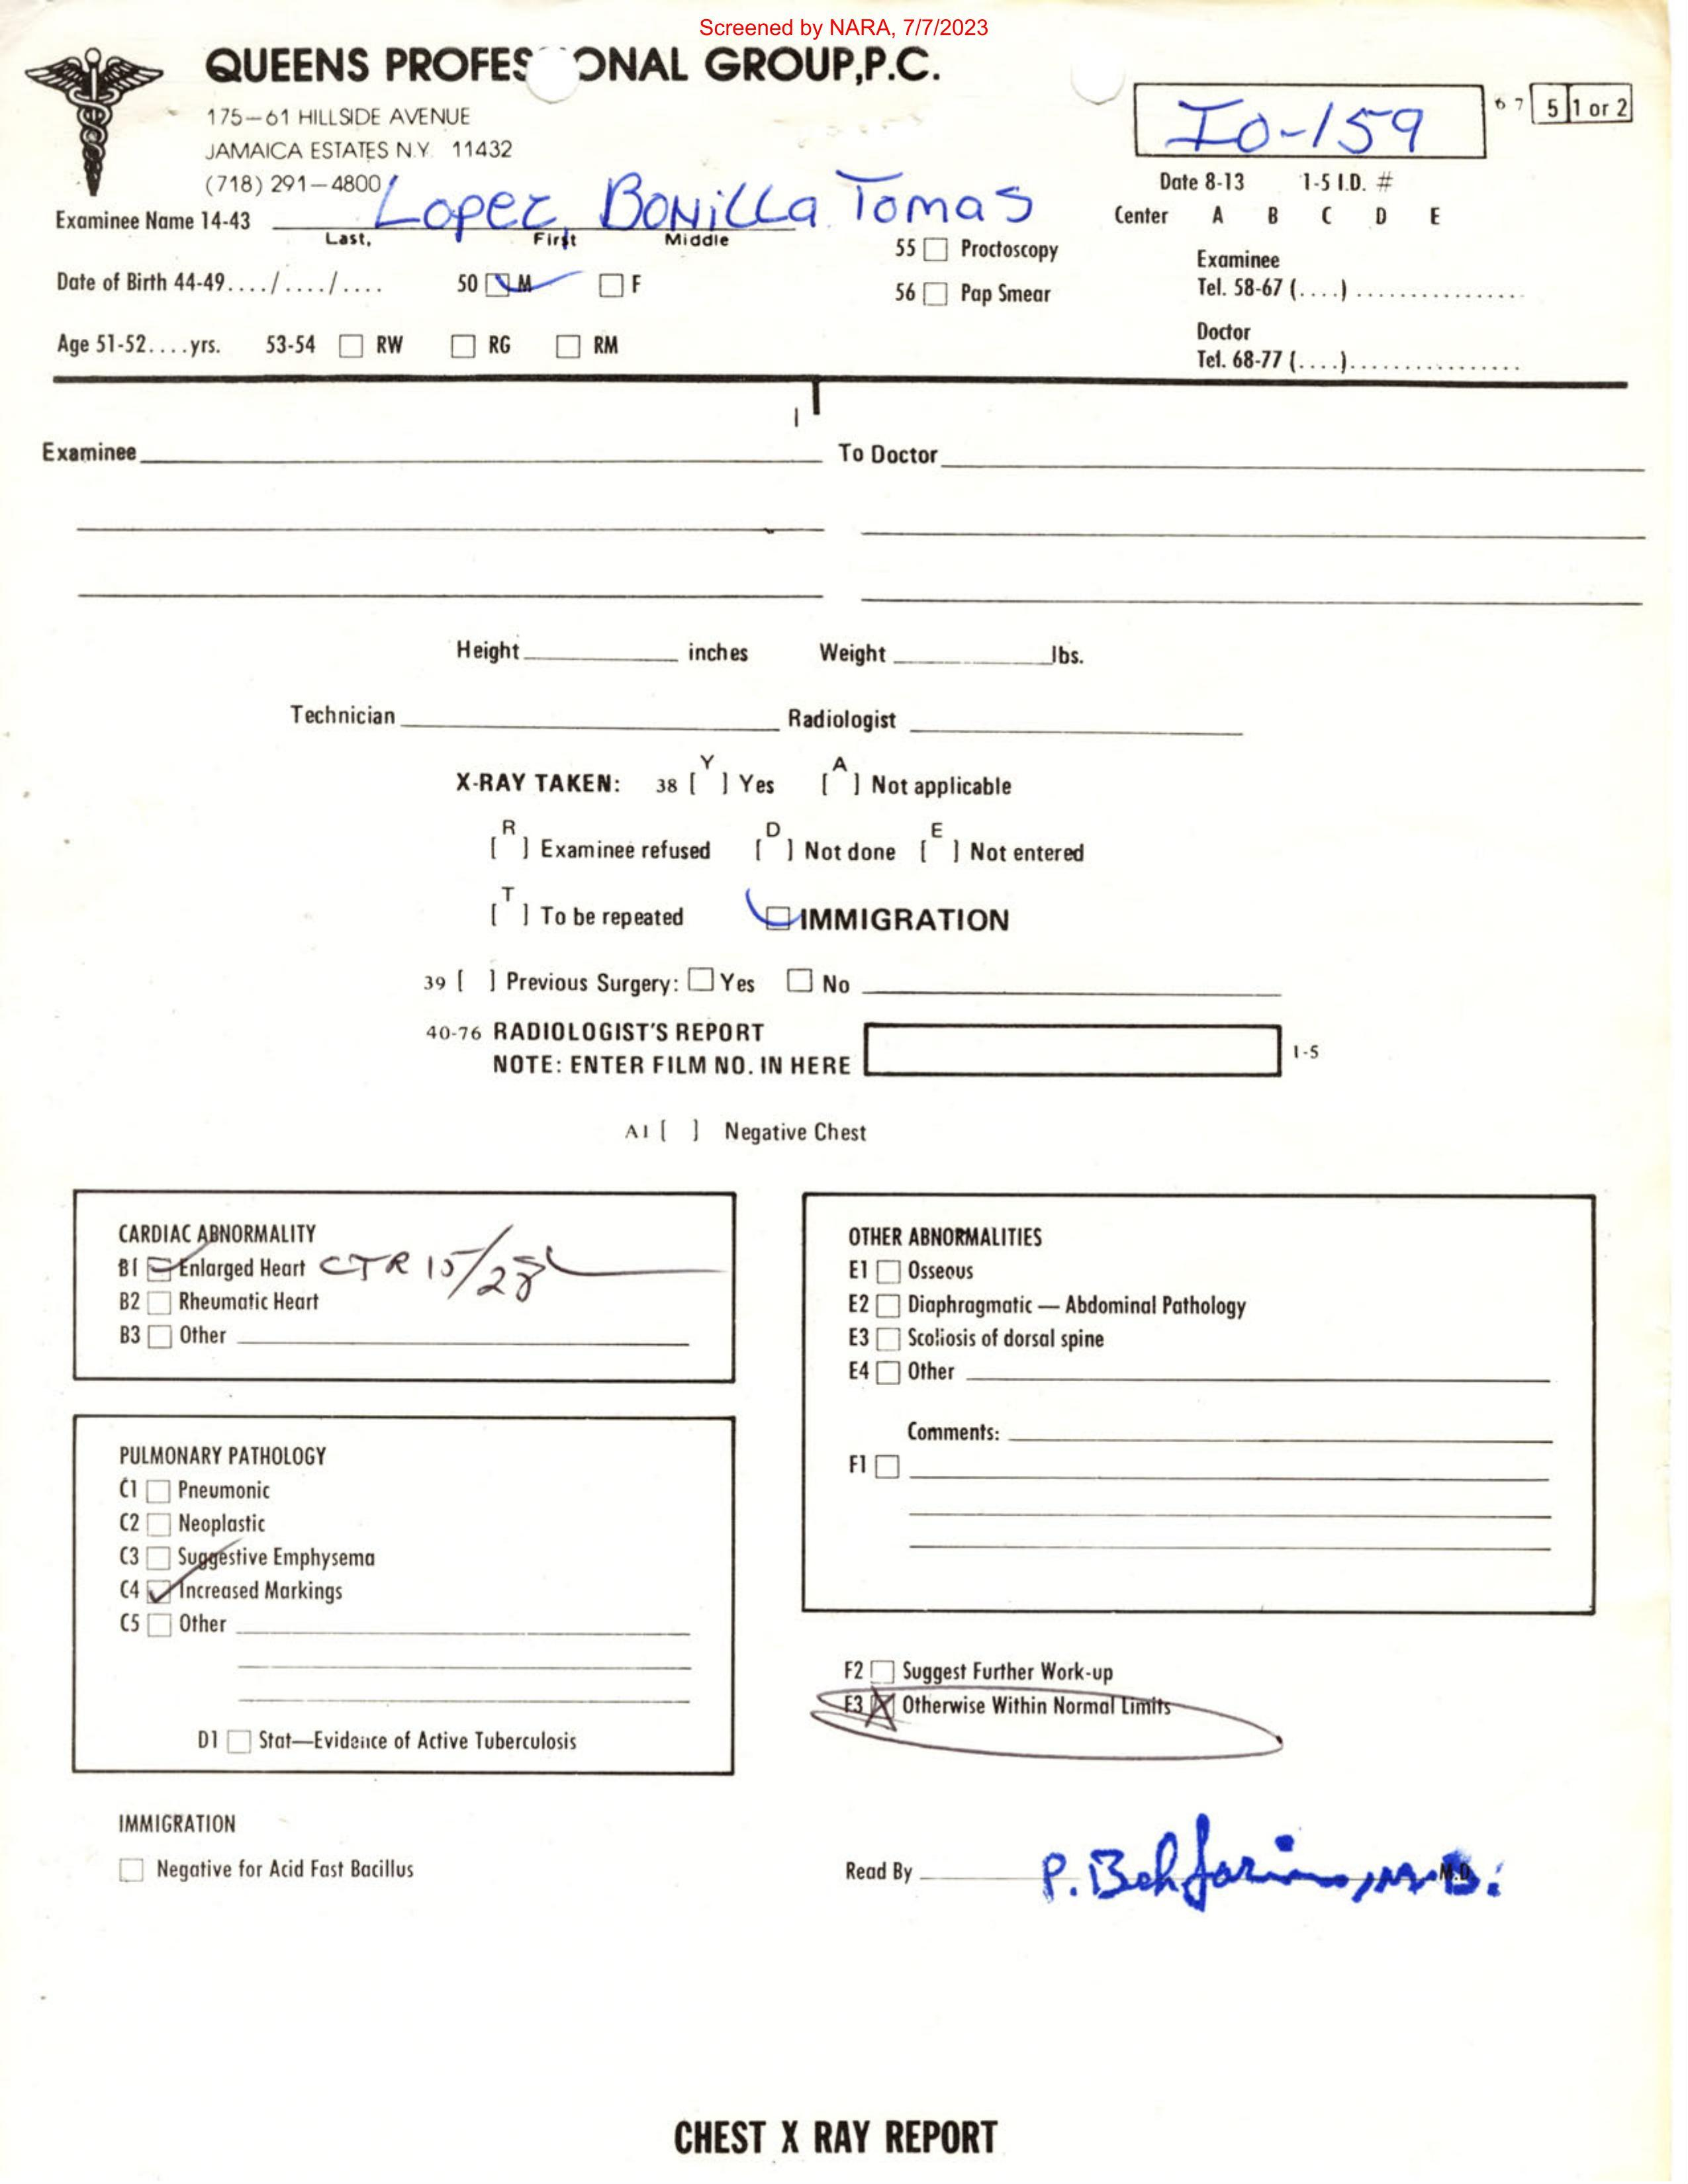 Screened by NARA, 7/7/2023
QUEENS PROFES ONAL GROUP,P.C.
175-61 HILLSIDE AVENUE
JAMAICA ESTATES N.Y. 11432
(718) 291-4800
IO-159
6 7 5 1 or 2
Date 8-13 1-5 I.D. #
Center A B C D E
Examinee Name 14-43 Lopez, Bonilla Tomas
Last, First Middle
55 Proctoscopy
Examinee
Date of Birth 44-49..../..../.... 50 M F
56 Pap Smear
Tel. 58-67 (....) ................
Age 51-52....yrs. 53-54 RW RG RM
Doctor
Tel. 68-77 (....)................
Examinee To Doctor
Height inches Weight lbs.
Technician Radiologist
X-RAY TAKEN: 38 [ Y ] Yes [ A ] Not applicable
[ R ] Examinee refused [ D ] Not done [ E ] Not entered
[ T ] To be repeated IMMIGRATION
39 [ ] Previous Surgery: Yes No
40-76 RADIOLOGIST'S REPORT
NOTE: ENTER FILM NO. IN HERE 1-5
A1 [ ] Negative Chest
CARDIAC ABNORMALITY
B1 Enlarged Heart CTR 15/28
B2 Rheumatic Heart
B3 Other
PULMONARY PATHOLOGY
C1 Pneumonic
C2 Neoplastic
C3 Suggestive Emphysema
C4 Increased Markings
C5 Other
D1 Stat—Evidence of Active Tuberculosis
OTHER ABNORMALITIES
E1 Osseous
E2 Diaphragmatic — Abdominal Pathology
E3 Scoliosis of dorsal spine
E4 Other
Comments:
F1
F2 Suggest Further Work-up
F3 Otherwise Within Normal Limits
IMMIGRATION
Negative for Acid Fast Bacillus
Read By P. M.D.
CHEST X RAY REPORT